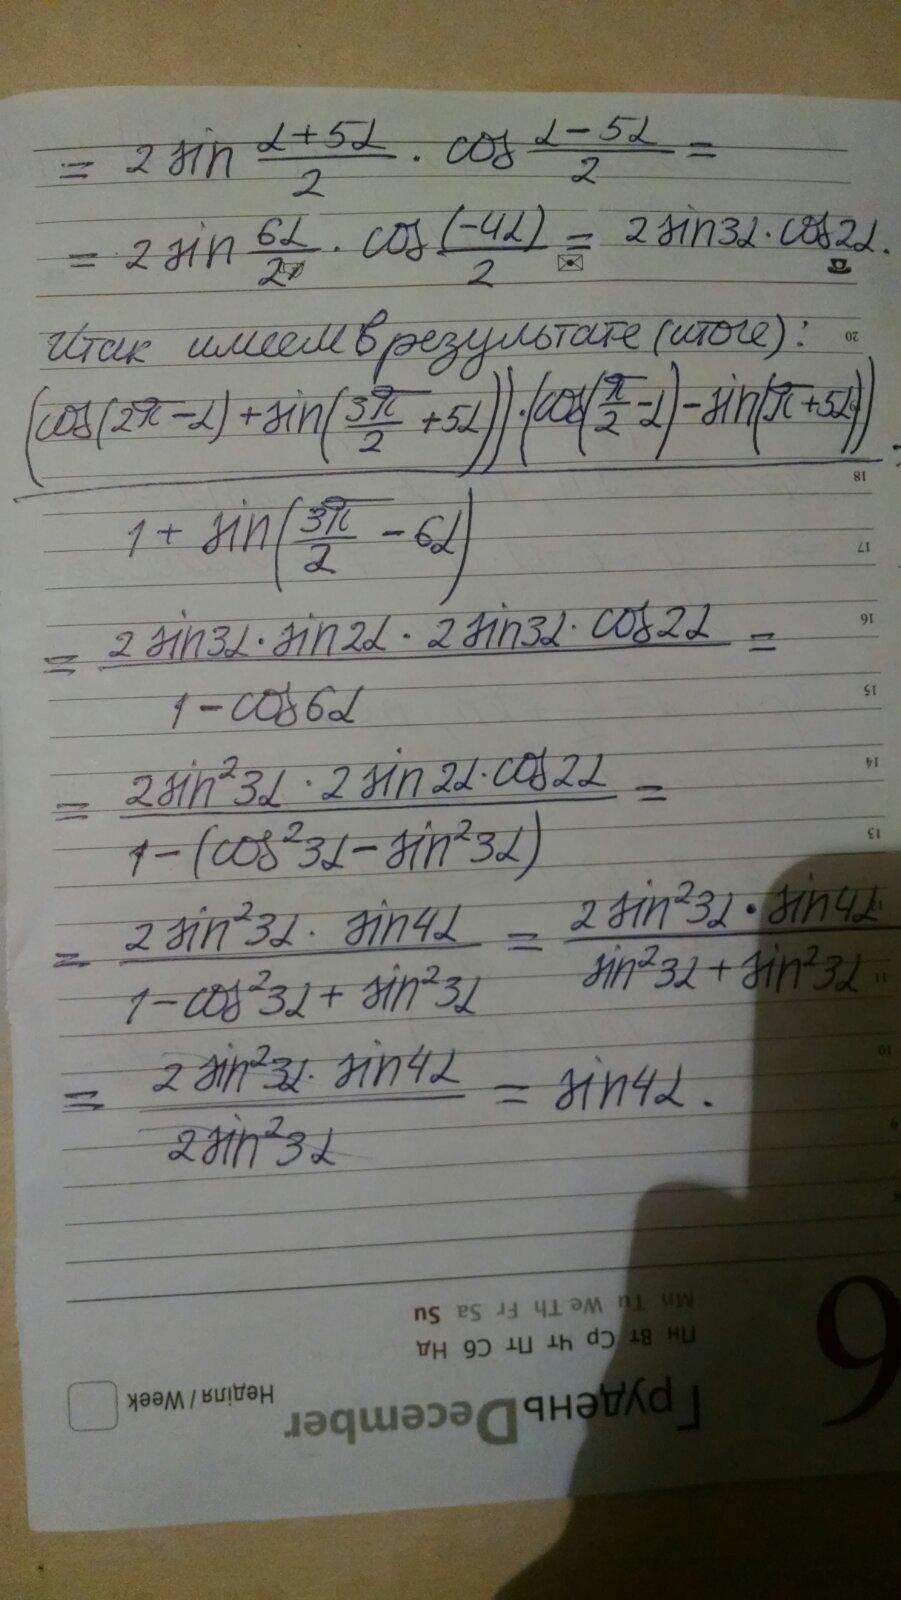 = 2 sin (α+5α)/2 · cos (α-5α)/2 =
= 2 sin 6α/2 · cos (-4α)/2 = 2 sin3α · cos2α.
Итак имеем в результате (итоге):
(cos(2π-α)+sin(3π/2+5α))·(cos(π/2-α)-sin(π+5α))
1 + sin(3π/2 - 6α)
= 2 sin3α · sin2α · 2 sin3α · cos2α =
1 - cos6α
= 2sin²3α · 2 sin2α · cos2α =
1 - (cos²3α - sin²3α)
= 2 sin²3α · sin4α / 1 - cos²3α + sin²3α = 2 sin²3α · sin4α / sin²3α + sin²3α
= 2 sin²3α · sin4α / 2sin²3α = sin4α.
20
18
17
16
15
14
13
12
11
10
9
8
Mn Tu We Th Fr Sa Su
Пн Вт Ср Чт Пт Сб Нд
Неділя / Week
ГруденьDecember
6